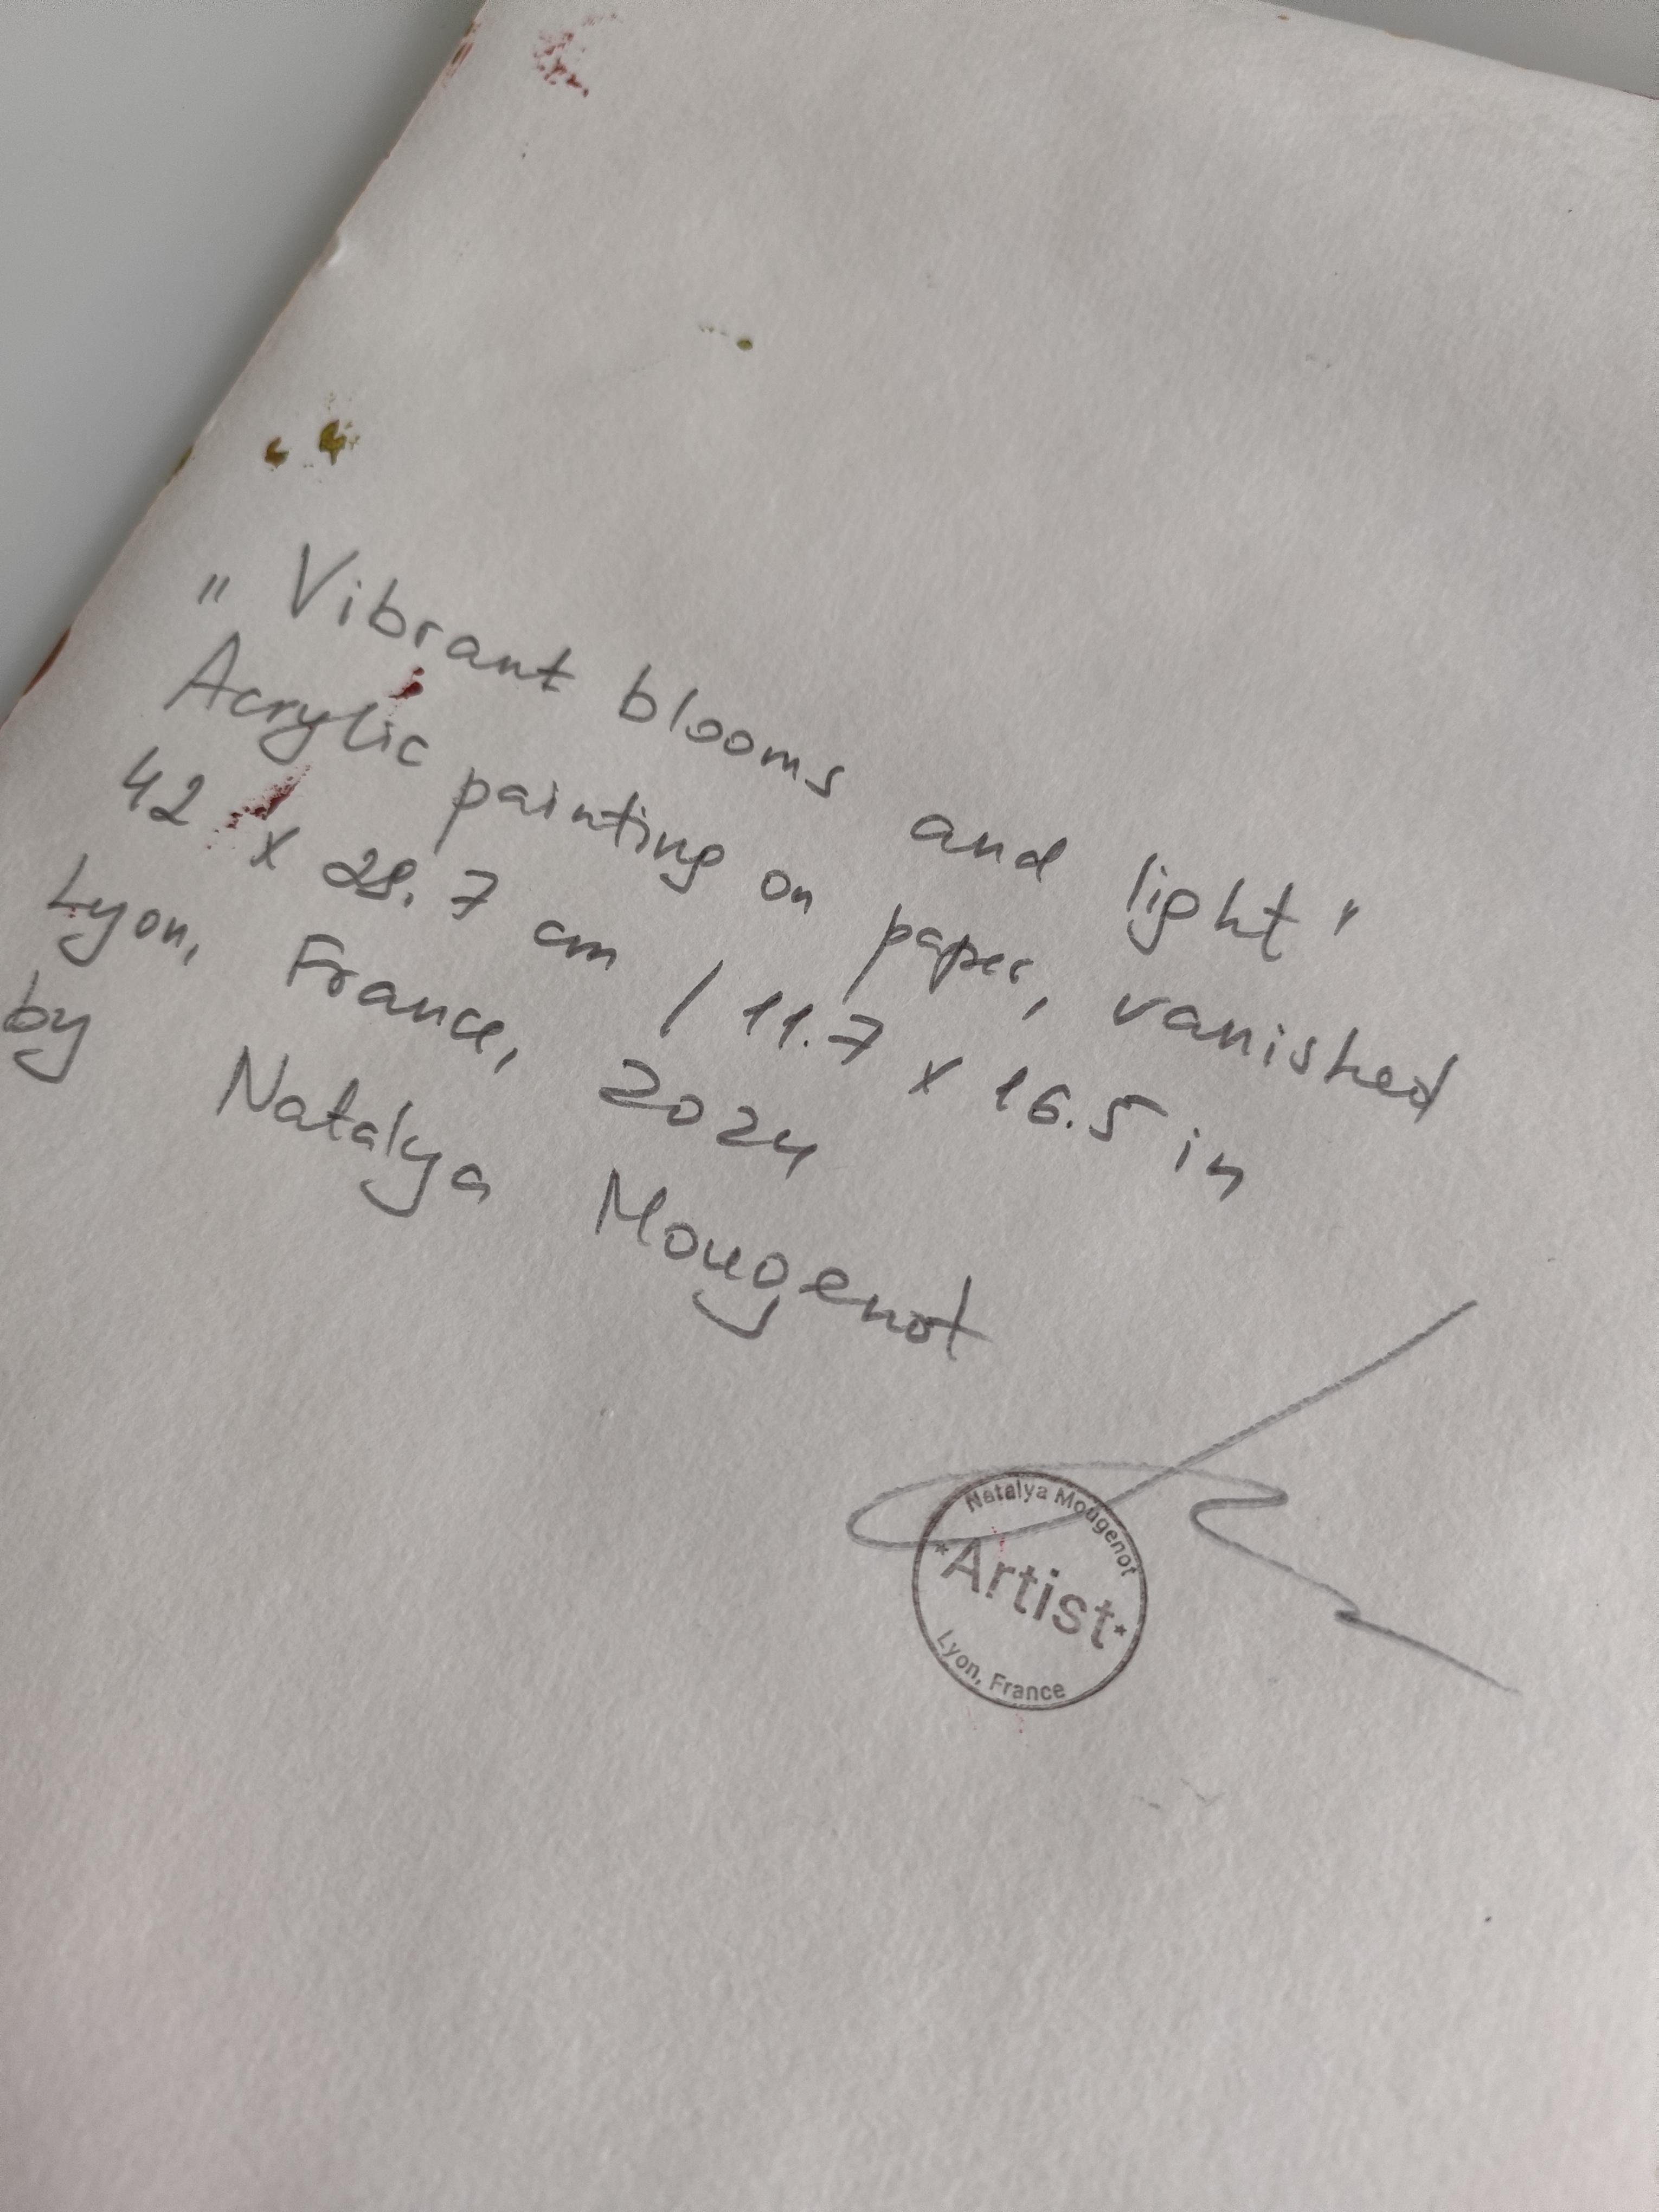 "Vibrant blooms and light"
Acrylic painting on paper, vanished
42 x 28.7 cm / 11.7 x 16.5 in
Lyon, France, 2024
by Natalya Mougenot
Natalya Mougenot
*Artist*
Lyon, France